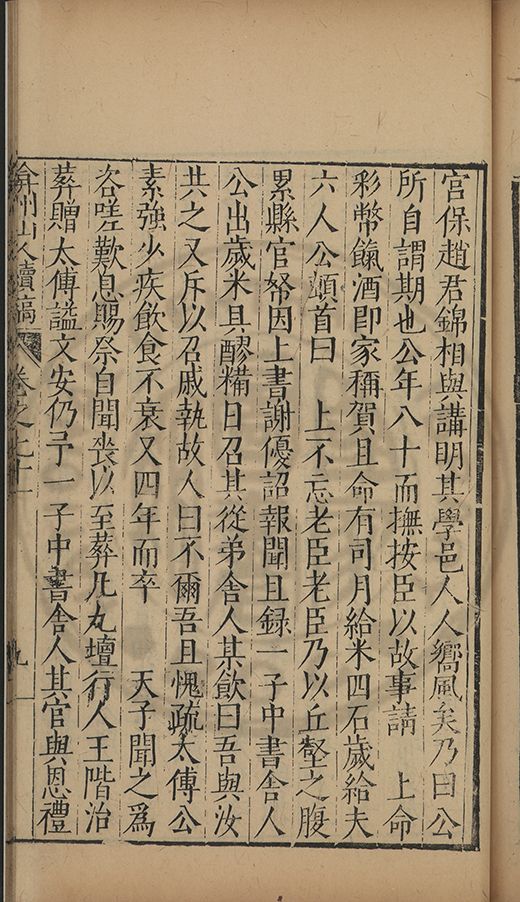 宮保趙君錦相與講明其學邑人人嚮風矣乃曰公
所自謂期也公年八十而撫按臣以故事請 上命
彩幣餼酒卽家稱賀且命有司月給米四石歲給夫
六人公頓首曰 上不忘老臣老臣乃以丘壑之腹
累縣官帑因上書謝優詔報聞且録一子中書舍人
公出歲米具醪糒日召其從弟舍人某飲曰吾與汝
共之又斥以召戚執故人曰不爾吾且愧疏太傅公
素強少疾飲食不衰又四年而卒 天子聞之爲
咨嗟歎息賜祭自聞喪以至葬凡九壇行人王階治
葬贈太傅謚文安仍予一子中書舍人其官與恩禮
弇州山人續稿 卷之七十 九